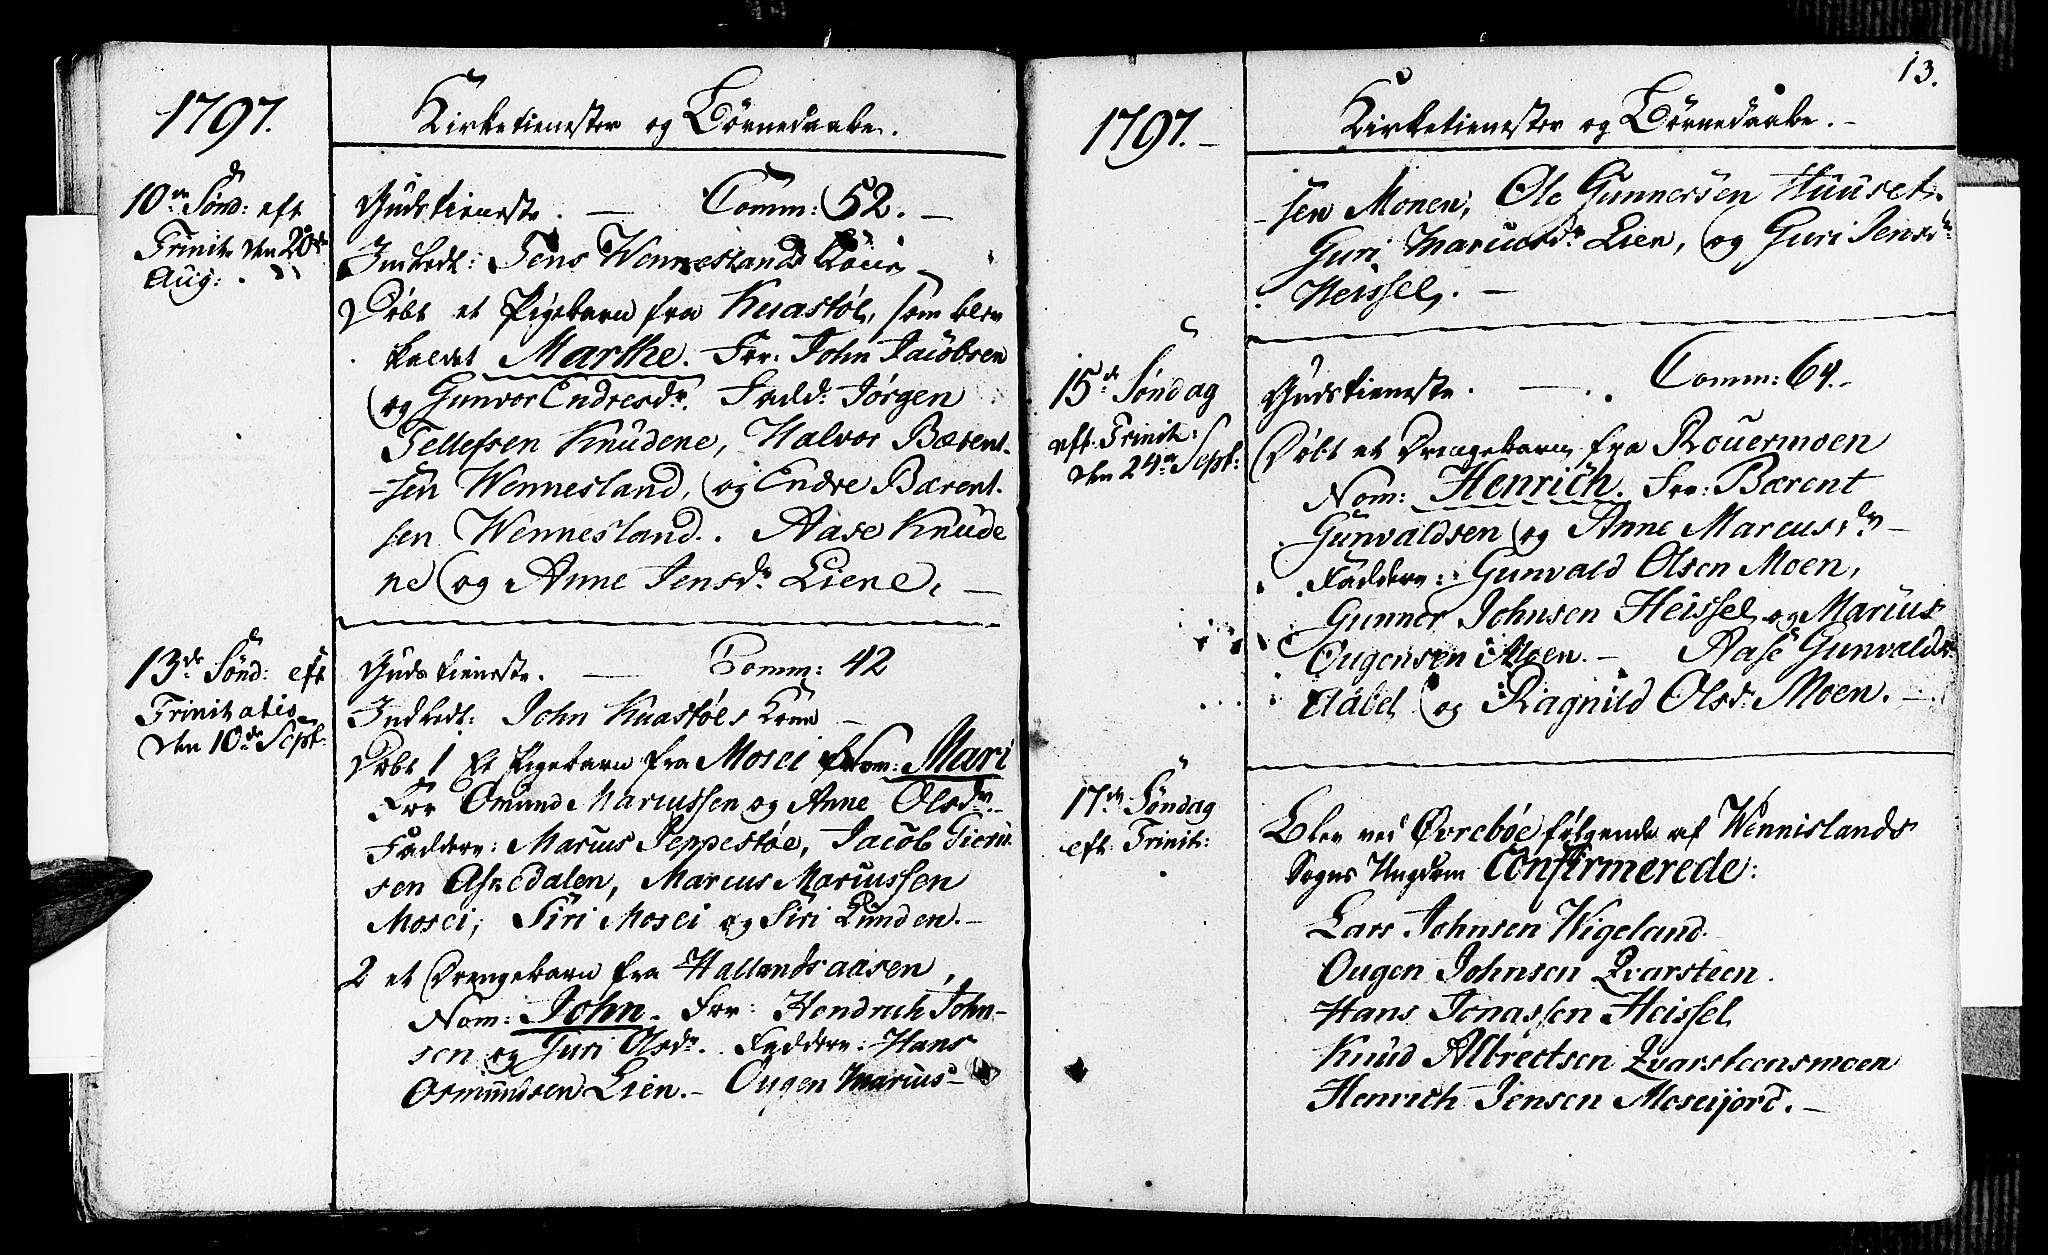 1797.
Kirketienester og Børnedaabe.
10de Sønd: eft
Trinit. den 20de
Aug:
Gudstieneste. — Comm: 52. —
Indledt: Jens Wenneslands Kone —
Døbt et Pigebarn fra Knastøl, som blev
kaldet Marthe. For: John Jacobsen
og Gunvor Endresdr. Fadd: Jørgen
Tellefsen Knudene, Halvor Bærent-
-sen Wennesland, og Endre Bærent-
sen Wennesland. Aase Knude
ne og Anne Jensdr Liene. —
13de Sønd: eft
Trinitatis
den 10de Sept:
Gudstieneste. — Comm: 42
Indledt: John Knastøls Kone —
Døbt 1 Et Pigebarn fra Mosei Nom: Mari
For Omund Mariussen og Anne Olsdr. —
Faddere: Marius Jeppestøe, Jacob Gieru-
sen Asedalen, Marcus Mariussen
Mosei, Siri Mosei og Siri Lunden. —
2 et Drengebarn fra Hallandsaasen,
Nom: John. For: Hendrich John-
sen og Guri Olsdr. Faddere: Hans
Osmundsen Lien. — Ougen Marius-
13.
1797. —
Kirketienester og Børnedaabe. —
-sen Monen, Ole Gunnersen Huuset.
Guri Marcusdr Lien, og Guri Jensdr
Heissel. —
15de Søndag
eft. Trinit:
den 24de Sept:
Gudstieneste. — Comm: 64. —
Døbt et Drengebarn fra Rouermoen
Nom: Henrich. For: Bærent
Gunvaldsen og Anne Marcusdr —
Faddere: Gunvald Olsen Moen,
Gunner Johnsen Heissel og Marius
Ougensen Moen. — Aase Gunvaldsdr
og Ragnild Olsdr Moen. —
17de Søndag
eft Trinit:
Blev ved Øvrebøe følgende af Wennislands
Sogns Ungdom Confirmerede:
Lars Johnsen Wigeland.
Ougen Johnsen Qvarsteen.
Hans Jonassen Heissel
Knud Albrectsen Qvarsteensmoen
Henrich Jensen Moseijord. —